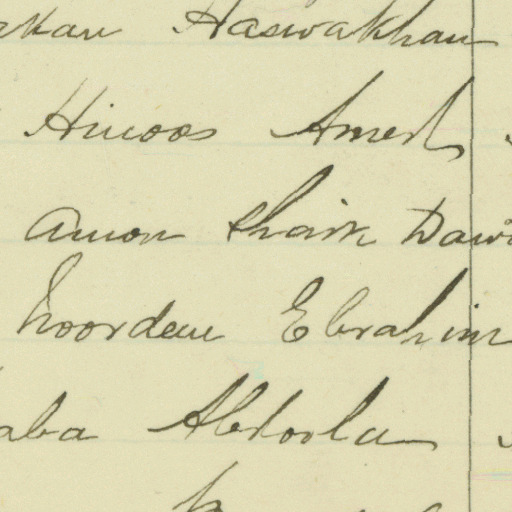 Haswakhan
Hinoos Amed
Amon Shaik Dawo
Noordeen Ebrahim
aba Abdoola